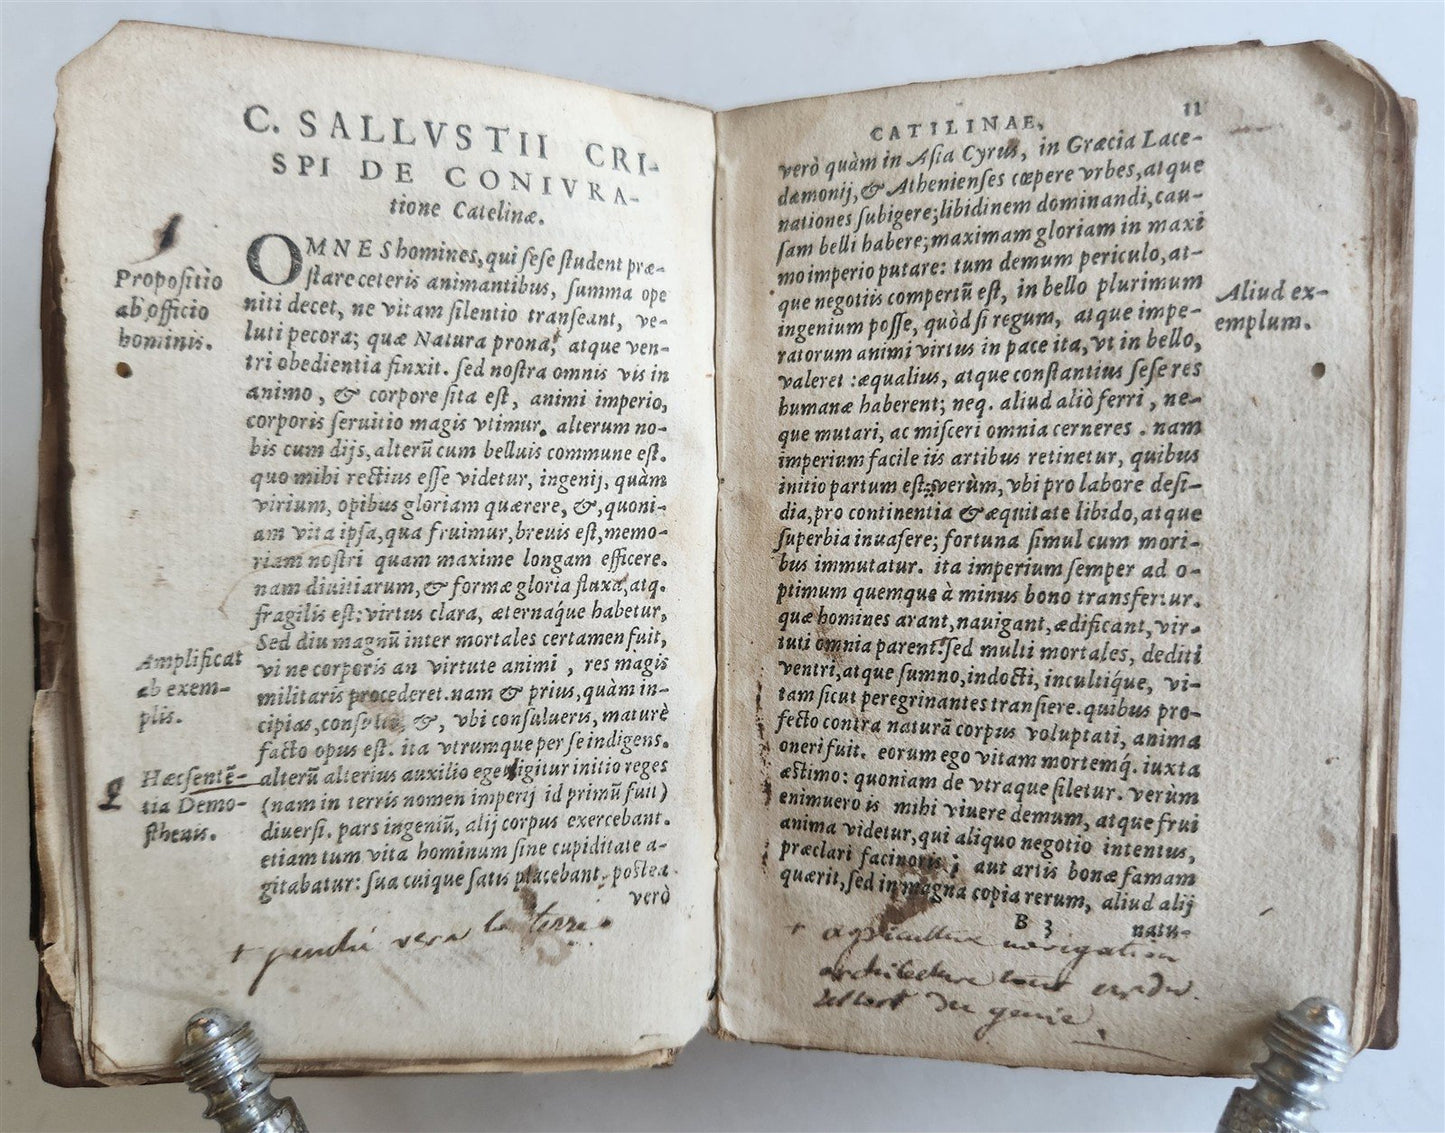 C. SALLVSTII CRI-
SPI DE CONIVRA-
tione Catelinæ.
1
Propositio
ab officio
hominis.
OMNES homines, qui sese student præ-
stare ceteris animantibus, summa ope
niti decet, ne vitam silentio transeant, ve-
luti pecora; quæ Natura prona, atque ven-
tri obedientia finxit. sed nostra omnis vis in
animo, & corpore sita est, animi imperio,
corporis seruitio magis vtimur. alterum no-
bis cum dijs, alterũ cum belluis commune est.
quo mihi rectius esse videtur, ingenij, quàm
virium, opibus gloriam quærere, &, quoni-
am vita ipsa, qua fruimur, breuis est, memo-
riam nostri quam maxime longam efficere.
nam diuitiarum, & formæ gloria fluxa, atq.
fragilis est: virtus clara, æternaq́ue habetur.
Sed diu magnũ inter mortales certamen fuit,
vi ne corporis an virtute animi, res magis
militaris procederet. nam & prius, quàm in-
cipias, consulto, &, vbi consulueris, maturè
facto opus est. ita vtrumque per se indigens.
alterũ alterius auxilio eget. igitur initio reges
(nam in terris nomen imperij id primũ fuit)
diuersi. pars ingeniũ, alij corpus exercebant.
etiam tum vita hominum sine cupiditate a-
gitabatur: sua cuique satis placebant. postea
verò
Amplificat
ab exem-
plis.
2
Hæc sentẽ-
tia Demo-
sthenis.
+ pendu vera la terre
CATILINAE.
11
verò quàm in Asia Cyrus, in Græcia Lace-
dæmonij, & Athenienses cœpere vrbes, atque
nationes subigere; libidinem dominandi, cau-
sam belli habere; maximam gloriam in maxi
mo imperio putare: tum demum periculo, at-
que negotiis compertũ est, in bello plurimum
ingenium posse, quòd si regum, atque impe-
ratorum animi virtus in pace ita, vt in bello,
valeret: æqualius, atque constantius sese res
humanæ haberent; neq. aliud aliò ferri, ne-
que mutari, ac misceri omnia cerneres. nam
imperium facile iis artibus retinetur, quibus
initio partum est: verùm, vbi pro labore desi-
dia, pro continentia & æquitate libido, atque
superbia inuasere; fortuna simul cum mori-
bus immutatur. ita imperium semper ad o-
ptimum quemque à minus bono transfertur.
quæ homines arant, nauigant, ædificant, vir-
tuti omnia parent. sed multi mortales, dediti
ventri, atque sumno, indocti, incultiq́ue, vi-
tam sicut peregrinantes transiere. quibus pro-
fecto contra naturã corpus voluptati, anima
oneri fuit. eorum ego vitam mortemq́. iuxta
æstimo: quoniam de vtraque siletur. verùm
enimuero is mihi viuere demum, atque frui
anima videtur, qui aliquo negotio intentus,
præclari facinoris; aut artis bonæ famam
quærit, sed in magna copia rerum, aliud alij
B 3
natu-
Aliud ex-
emplum.
+ agriculture navigation
architecture tout
du genie.